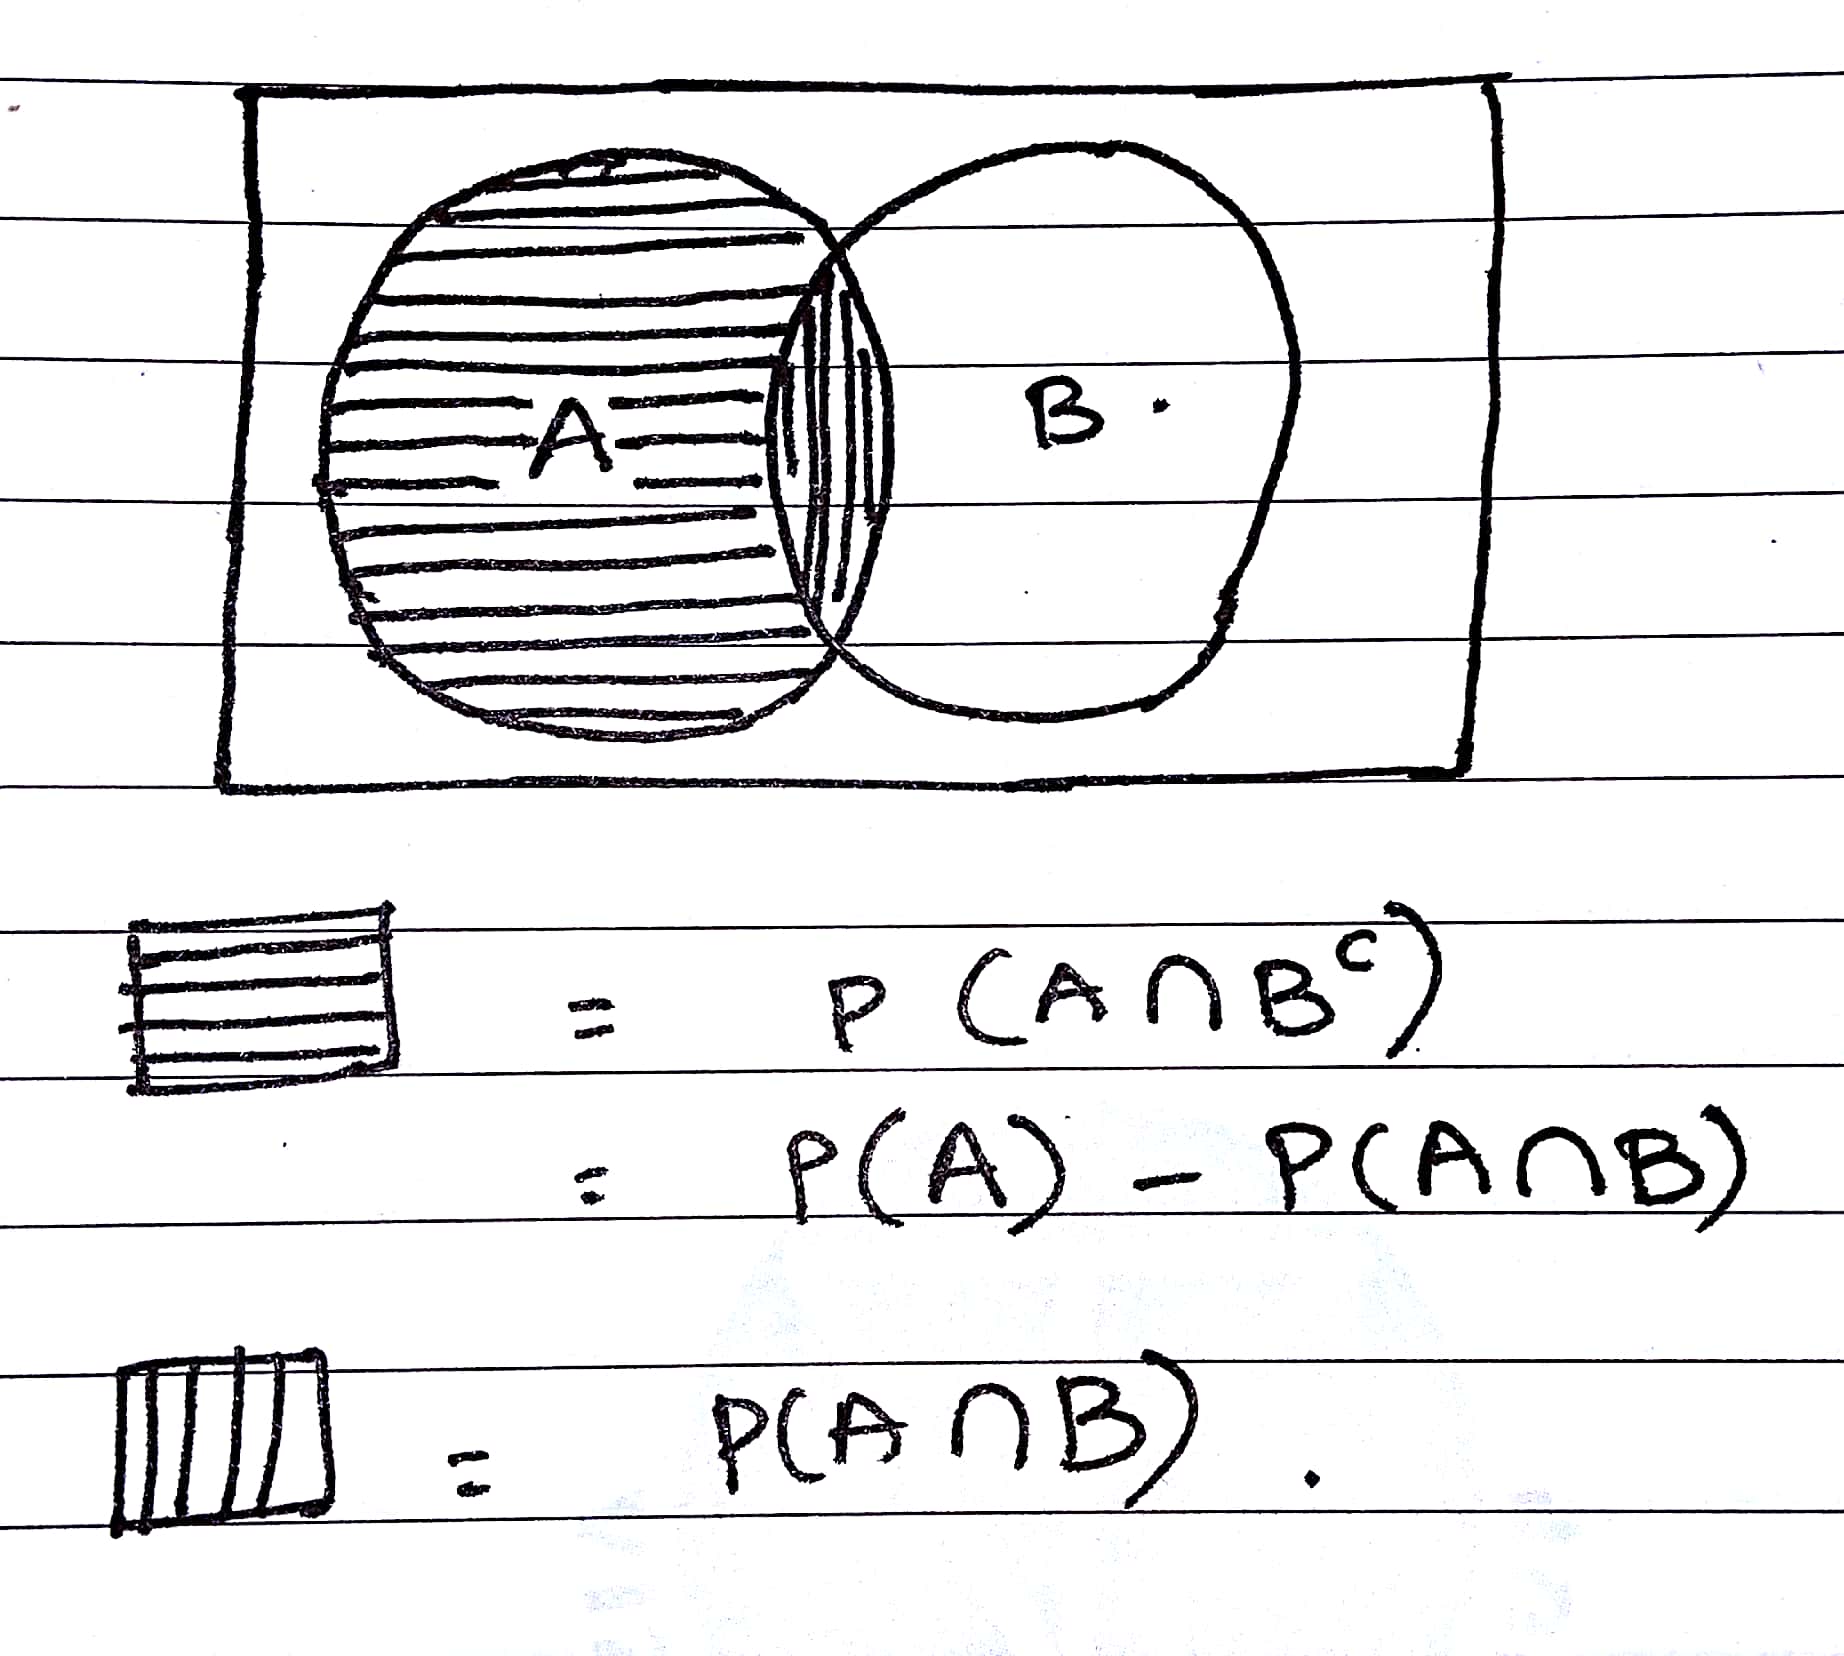 A B.
= P(A∩Bᶜ)
= P(A) - P(A∩B)
= P(A∩B).